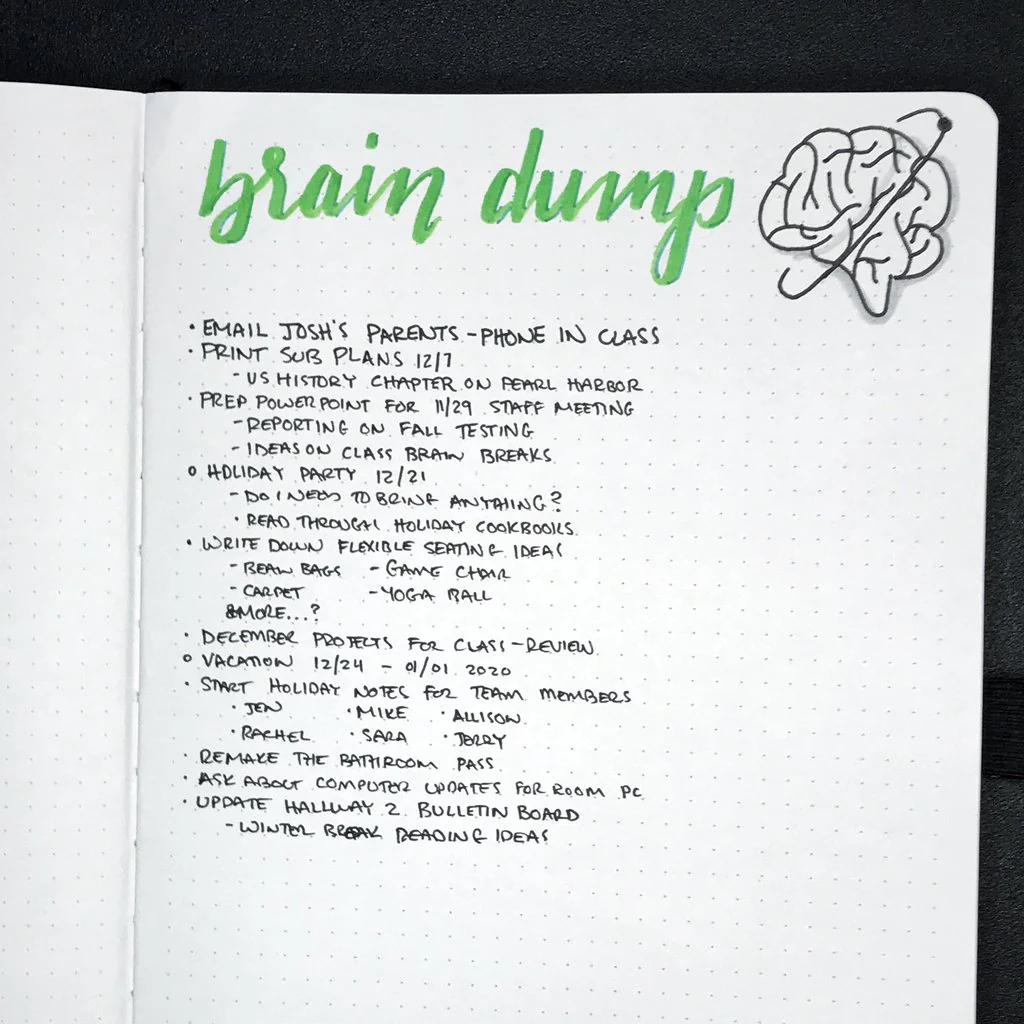 brain dump
• EMAIL JOSH'S PARENTS - PHONE IN CLASS
• PRINT SUB PLANS 12/7
- US HISTORY CHAPTER ON PEARL HARBOR
• PREP POWERPOINT FOR 11/29 STAFF MEETING
- REPORTING ON FALL TESTING
- IDEAS ON CLASS BRAIN BREAKS
o HOLIDAY PARTY 12/21
- DO I NEED TO BRING ANYTHING?
• READ THROUGH HOLIDAY COOKBOOKS
• WRITE DOWN FLEXIBLE SEATING IDEAS
- BEAN BAGS - GAME CHAIR
- CARPET - YOGA BALL
& MORE...?
• DECEMBER PROJECTS FOR CLASS - REVIEW
o VACATION 12/24 - 01/01 2020
• START HOLIDAY NOTES FOR TEAM MEMBERS
• JEN • MIKE • ALLISON
• RACHEL • SARA • JERRY
• REMAKE THE BATHROOM PASS
• ASK ABOUT COMPUTER UPDATES FOR ROOM PC
• UPDATE HALLWAY 2 BULLETIN BOARD
- WINTER BREAK READING IDEAS